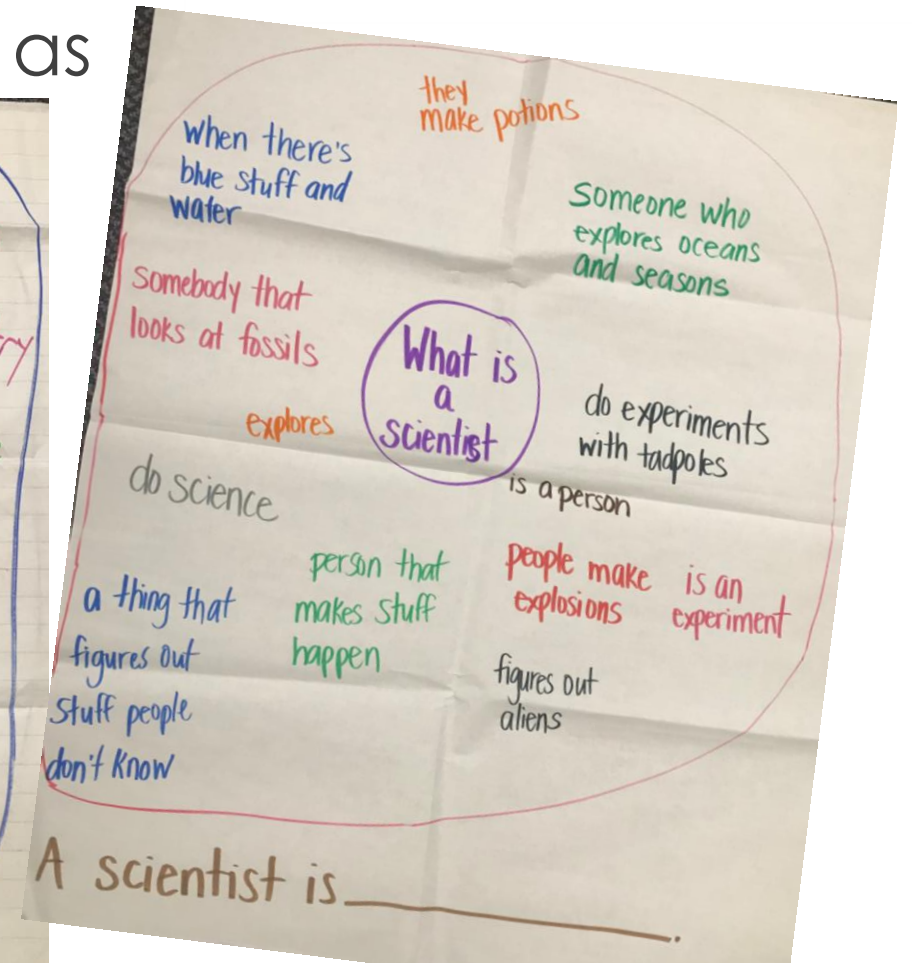 as
they
make potions
When there's
blue stuff and
water
Someone who
explores oceans
and seasons
somebody that
looks at fossils
What is
a
scientist
explores
do experiments
with tadpoles
do science
is a person
person that
makes stuff
happen
people make
explosions
is an
experiment
a thing that
figures out
stuff people
don't know
figures out
aliens
A scientist is______________.